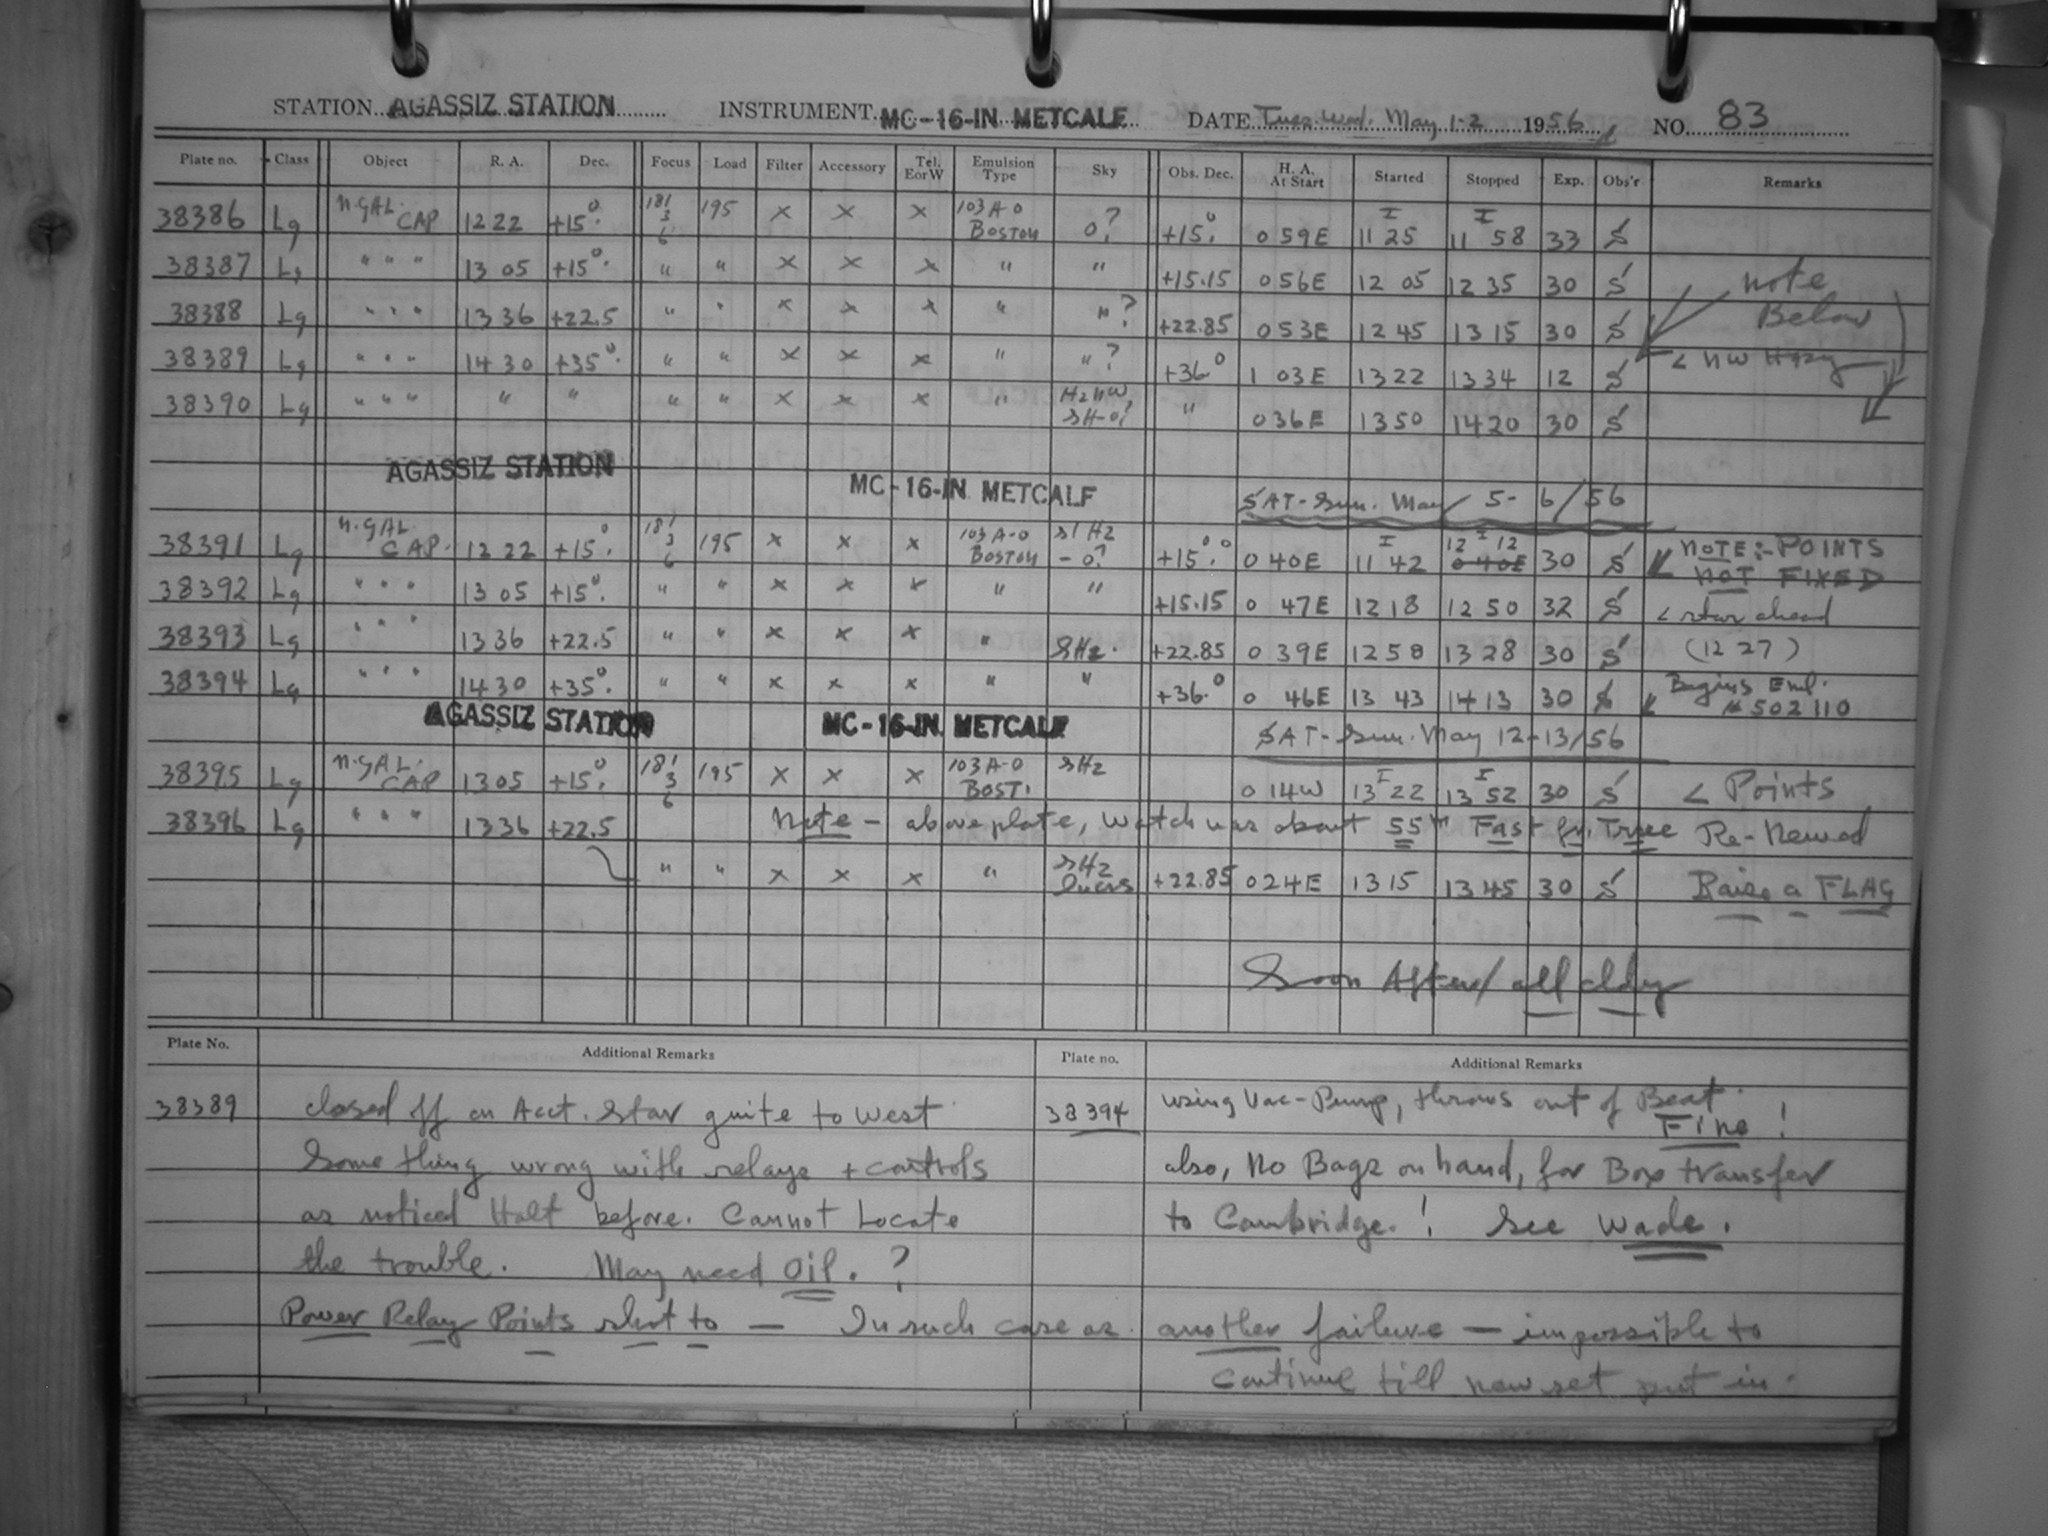 STATION AGASSIZ STATION INSTRUMENT MC-16-IN METCALF DATE Tues. Wed. May 1-2 1956 NO. 83
Plate no. Class Object R. A. Dec. Focus Load Filter Accessory Tel. E or W Emulsion Type Sky Obs. Dec. H. A. At Start Started Stopped Exp. Obs'r Remarks
38386 Lg N. GAL. CAP 12 22 +15°. 181 3 6 195 × × × 103A-O BOSTON 0? +15.° 0 59E I 11 25 I 11 58 33 S
38387 Lg " " " 13 05 +15°. " " × × × " " +15.15 0 56E 12 05 12 35 30 S note
38388 Lg " " " 13 36 +22.5 " " × × × " "? +22.85 0 53E 12 45 13 15 30 S Below
38389 Lg " " " 14 30 +35°. " " × × × " "? +36.° 1 03E 13 22 13 34 12 S < NW Hazy
38390 Lg " " " " " " " × × × " Hz NW, SH-0? " 0 36E 13 50 14 20 30 S
AGASSIZ STATION MC-16-IN METCALF SAT-Sun. May 5-6/56
38391 Lg N. GAL. CAP. 12 22 +15°. 181 3 6 195 × × × 103A-O BOSTON Sl Hz -0? +15.° 0 40E I 11 42 12 I 12 0 40E 30 S NOTE:- POINTS NOT FIXED
38392 Lg " " " 13 05 +15°. " " × × × " " +15.15 0 47E 12 18 12 50 32 S < star ahead
38393 Lg " " " 13 36 +22.5 " " × × × " SHz. +22.85 0 39E 12 58 13 28 30 S (12 27)
38394 Lg " " " 14 30 +35°. " " × × × " " +36.° 0 46E 13 43 14 13 30 S Begins Eml. # 502110
AGASSIZ STATION MC-16-IN METCALF SAT-Sun. May 12-13/56
38395 Lg N. GAL. CAP 13 05 +15°. 181 3 6 195 × × × 103A-O BOST. SHz 0 14W I 13 22 I 13 52 30 S < Points
38396 Lg " " " 13 36 +22.5 Note - above plate, watch was about 55m Fast fr. True Re-Newed
" " × × × " SHz +22.85 0 24E 13 15 13 45 30 S Raise a FLAG
Soon After/ all cldy
Plate No. Additional Remarks Plate no. Additional Remarks
38389 closed off on Acct. Star quite to West
Something wrong with relays + controls
as noticed Halt before. Cannot Locate
the trouble. May need Oil. ?
Power Relay Points shot to — In such case as
38394 using Vac-Pump, throws out of Beat.
Fine !
also, No Bags on hand, for Box transfer
to Cambridge. ! See Wade.
another failure — impossible to
continue till new set put in.